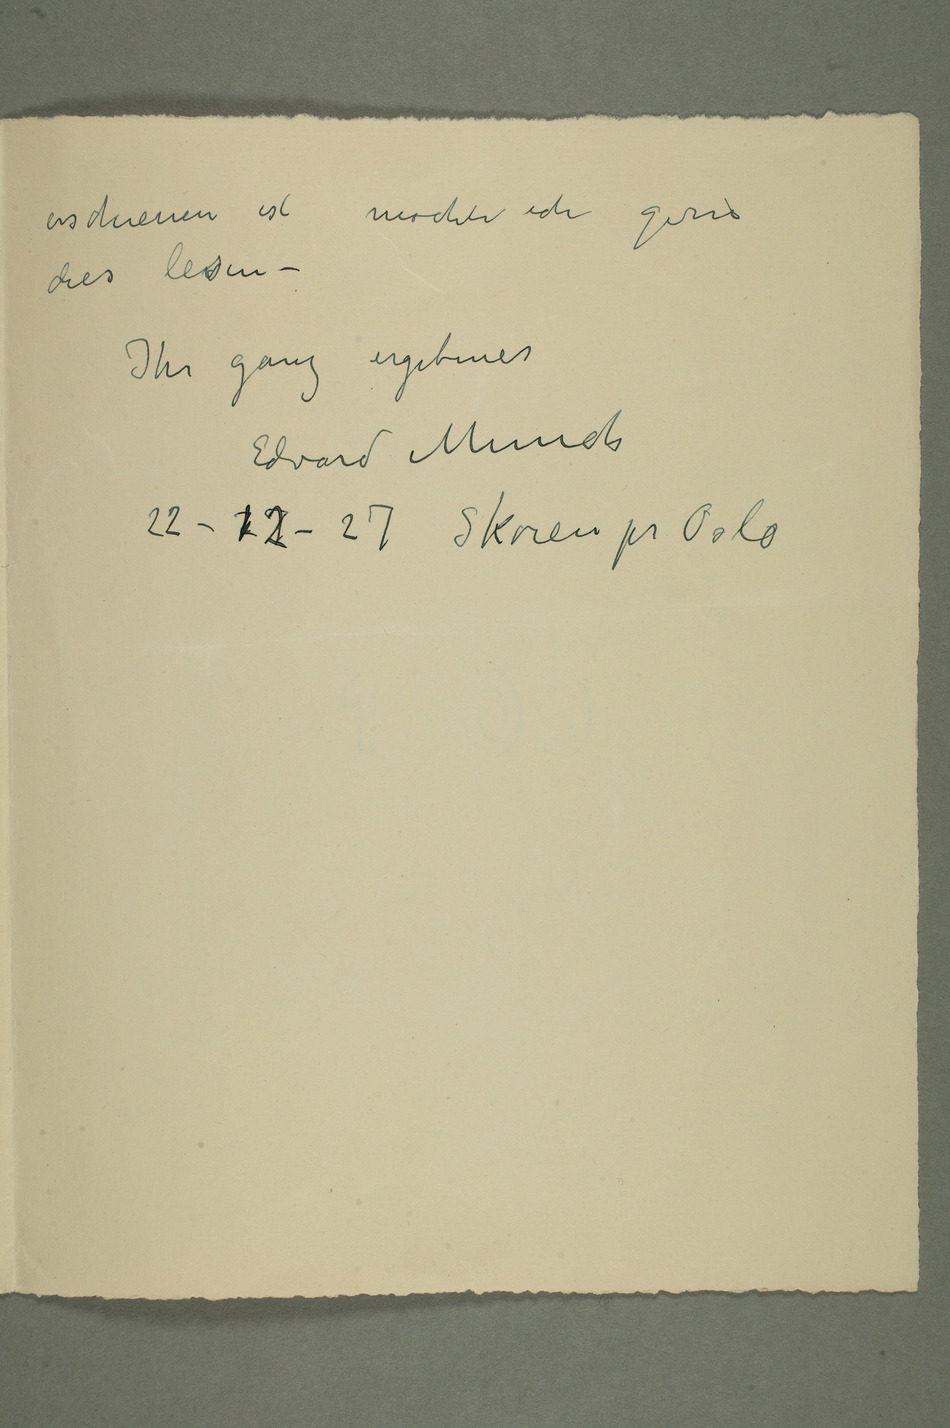 erschienen ist mochte ich gerne
dies lesen –
Ihr ganz ergebener
Edvard Munch
22 – 12 – 27 Skøien pr Oslo